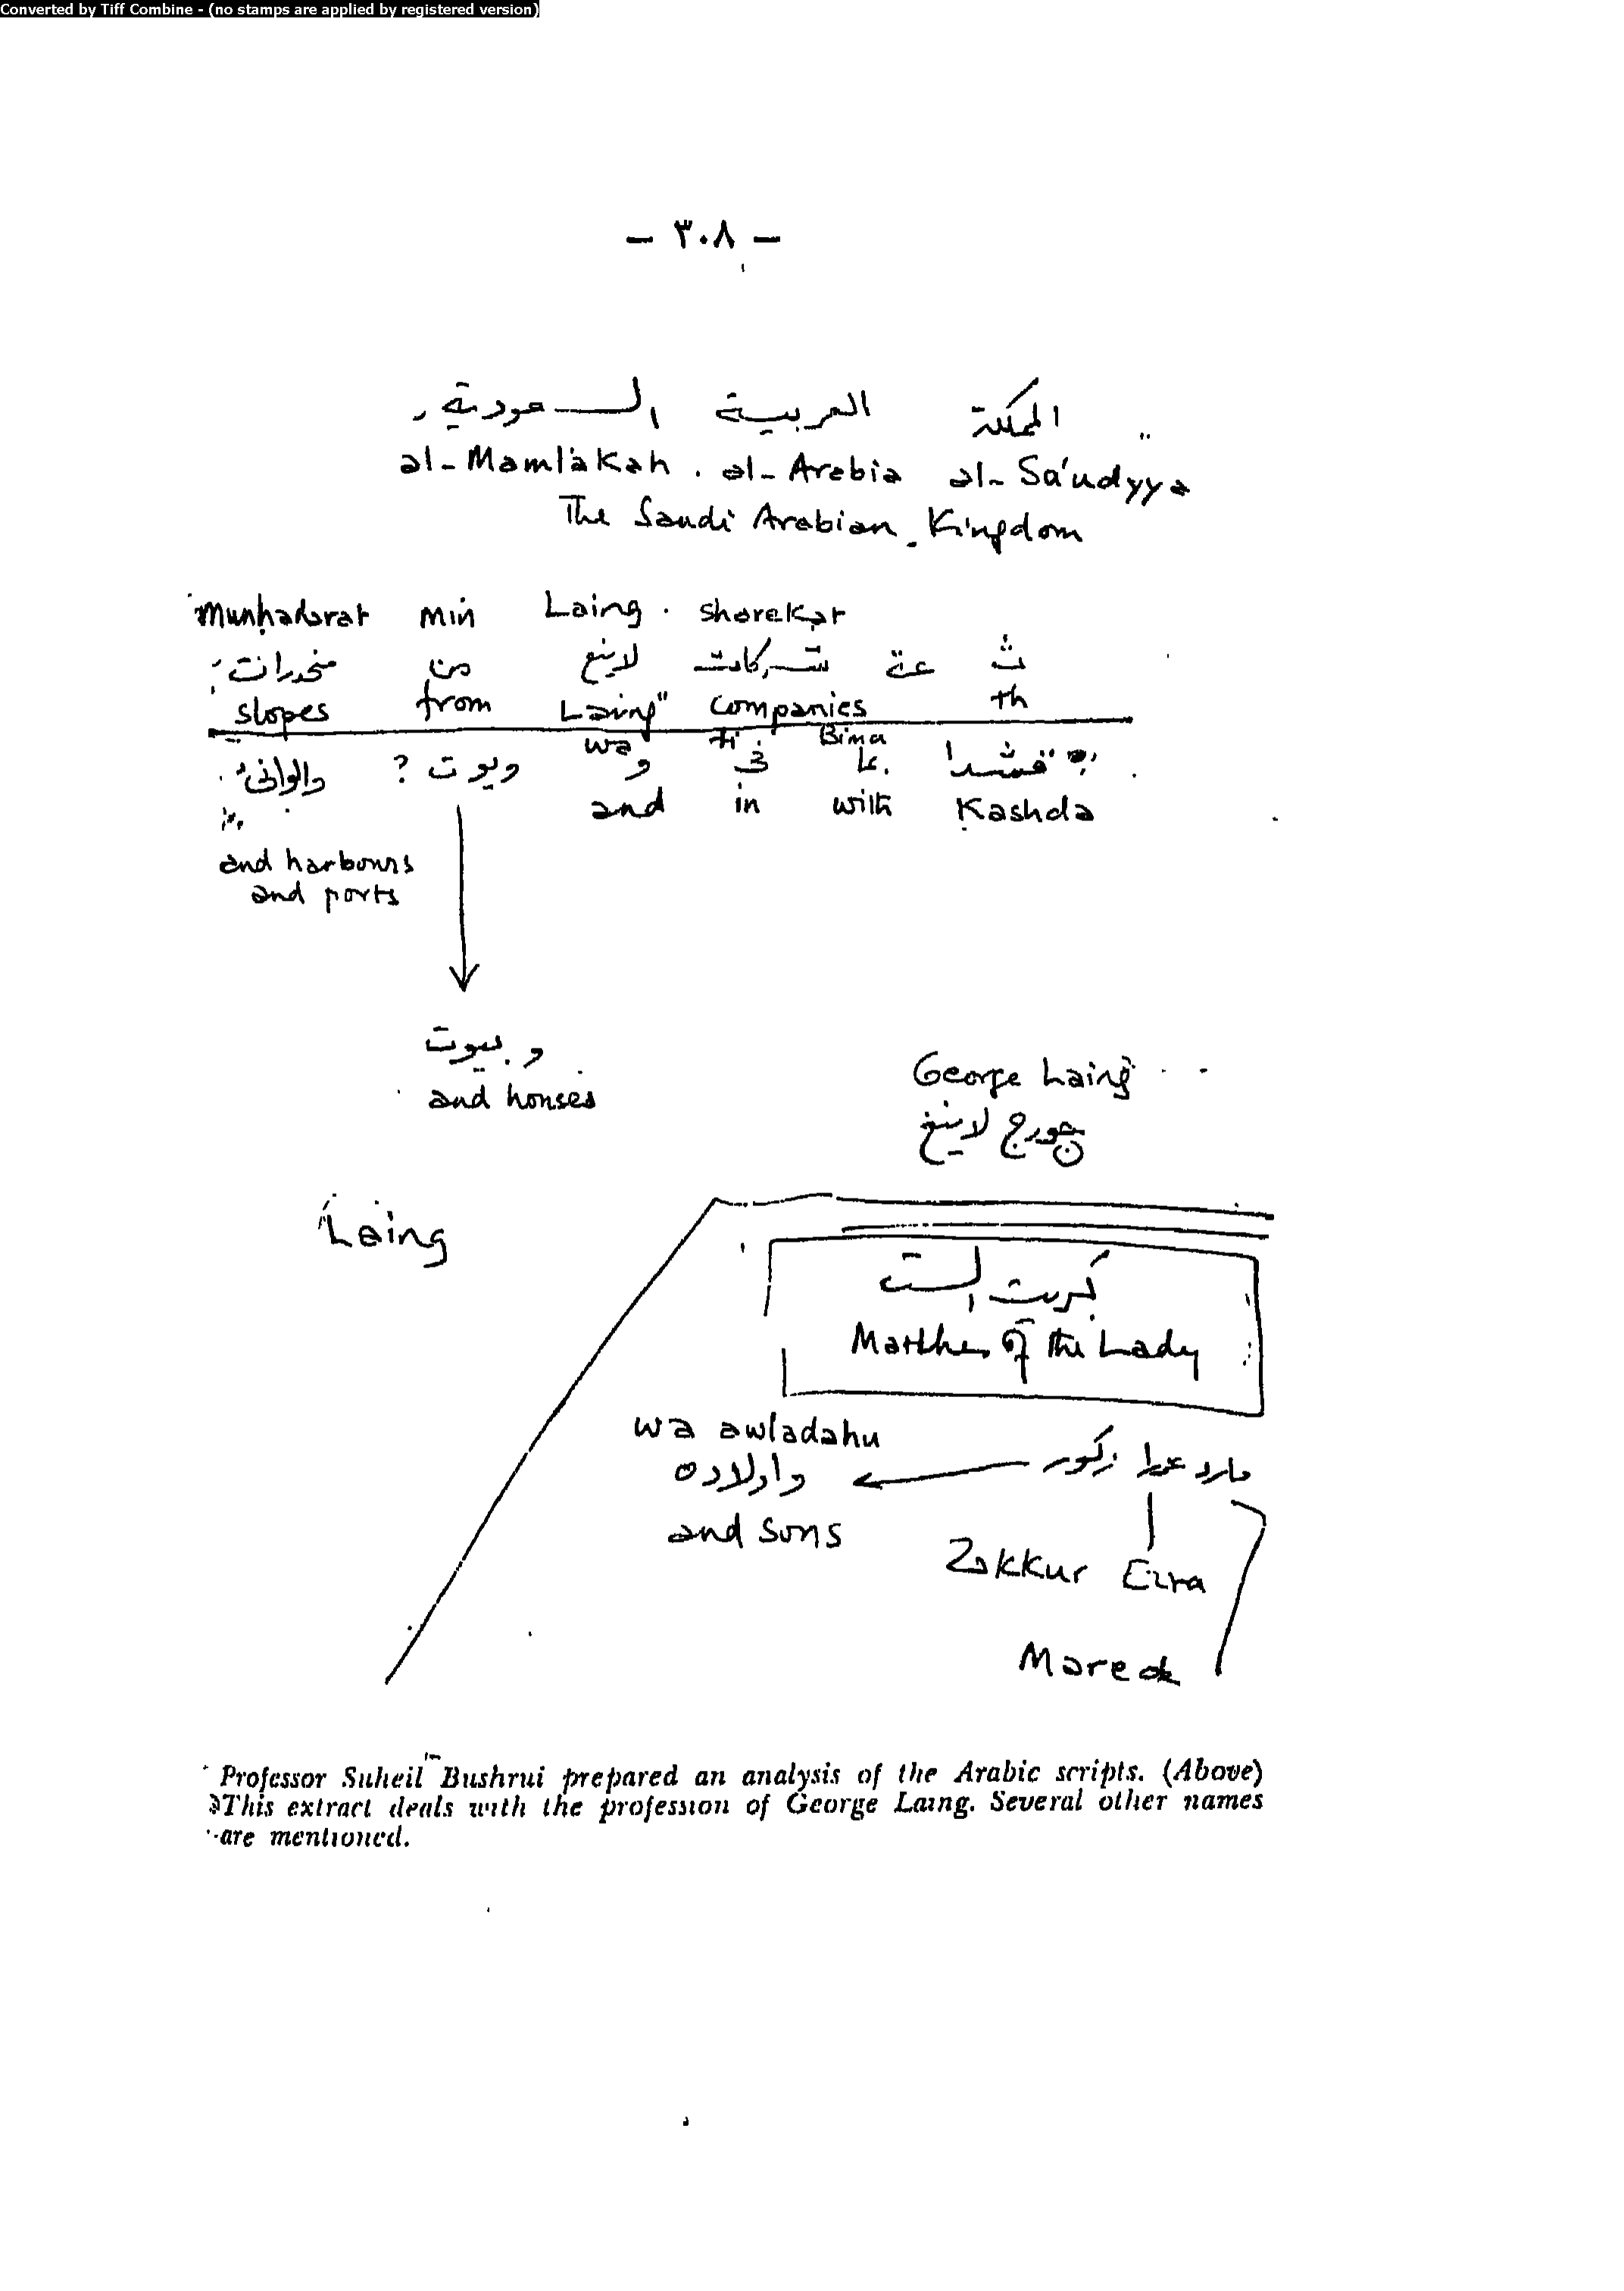 Converted by Tiff Combine - (no stamps are applied by registered version)
— ٣٠٨ —
المملكة العربية السعودية
al-Mamlakah. al-Arabia al-Sa'udyya
The Saudi Arabian Kingdom
min Laing sharekat
منحدرات من لاينغ شركات عة ث
slopes from Laing" companies th
wa fi Bima
والموانئ ? ويوت و في بما قشدا
and in with Kashda
and harbours
and ports
و بيوت
and houses
George Laing
جورج لاينغ
Laing
كبريت الست
Matches of the Lady
wa awladahu
وأولاده مارد عزرا زكور
and sons
Zakkur Ezra
Mared
Professor Suheil Bushrui prepared an analysis of the Arabic scripts. (Above)
This extract deals with the profession of George Laing. Several other names
are mentioned.